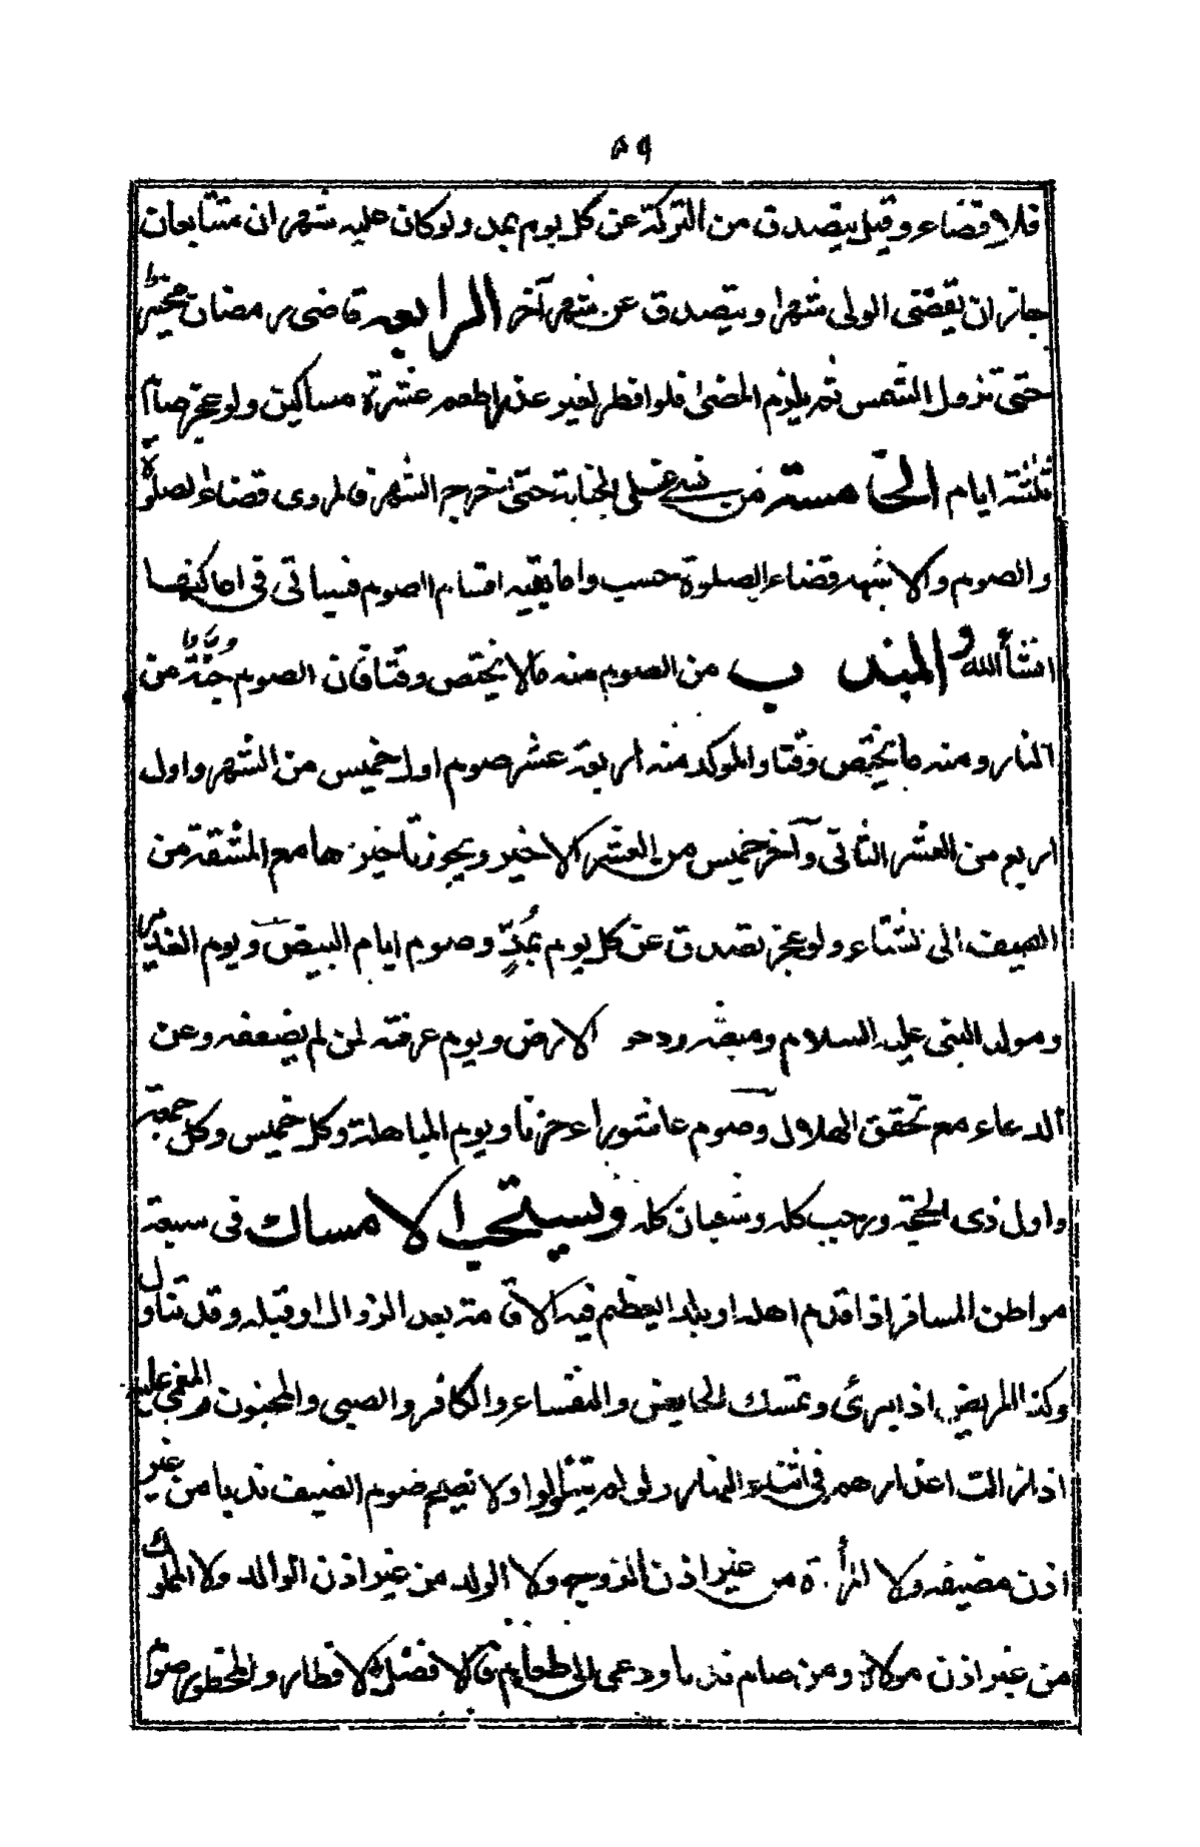 ٨٩
فلا قضاء وقيل يتصدق من التركة عن كل يوم بمد ولو كان عليه شهران متتابعان
جاز ان يقضى الولى شهرا ويتصدق عن شهر آخر الرابعه قاضى رمضان مخير
حتى تزول الشمس ثم يلزم المضى فلو افطر لغير عذر اطعم عشرة مساكين ولو عجز صام
ثلثة ايام الخامسته من نسى غسل الجنابة حتى خرج الشهر فالمروى قضاء الصلوة
والصوم والاشهر قضاء الصلوة حسب واما بقيه اقسام الصوم فسياتى فى اماكنها
انشأ الله والمندوب من الصوم منه مالا يختص وقتا فان الصوم جنة من
النار ومنه ما يختص وقتا والموكد منه اربعة عشر صوم اول خميس من الشهر واول
اربع من العشر الثانى وآخر خميس من العشر الاخير ويجوز تاخيرها مع المشقة من
الصيف الى الشتاء ولو عجز تصدق عن كل يوم بمُدٍّ وصوم ايام البيض ويوم الغدير
ومولد النبى عليه السلام ومبعثه ودحو الارض ويوم عرفته لمن لم يضعفه وعن
الدعاء مع تحقق الهلال وصوم عاشوراء حزنا ويوم المباهلة وكل خميس وكل جمعة
واول ذى الحجة ورجب كله وشعبان كله ويستحب الامساك فى سبعة
مواطن المسافر اذا قدم اهله او بلد العظيم فيه الاقامة بعد الزوال او قبله وقد تناول
وكذا المريض اذا برئ وتمسك الحايض والنفساء والكافر والصبى والمجنون والمغمى عليه
اذا زالت اعذارهم فى اثناء النهار ولو لم يتناولوا ولا يصح صوم الضيف ندبا من غير
اذن مضيفه ولا المرأة من غير اذن الزوج ولا الولد من غير اذن الوالد ولا المملوك
من غير اذن مولاه ومن صام ندبا ودعى الى طعام فالافضل الافطار والمحظور صوم